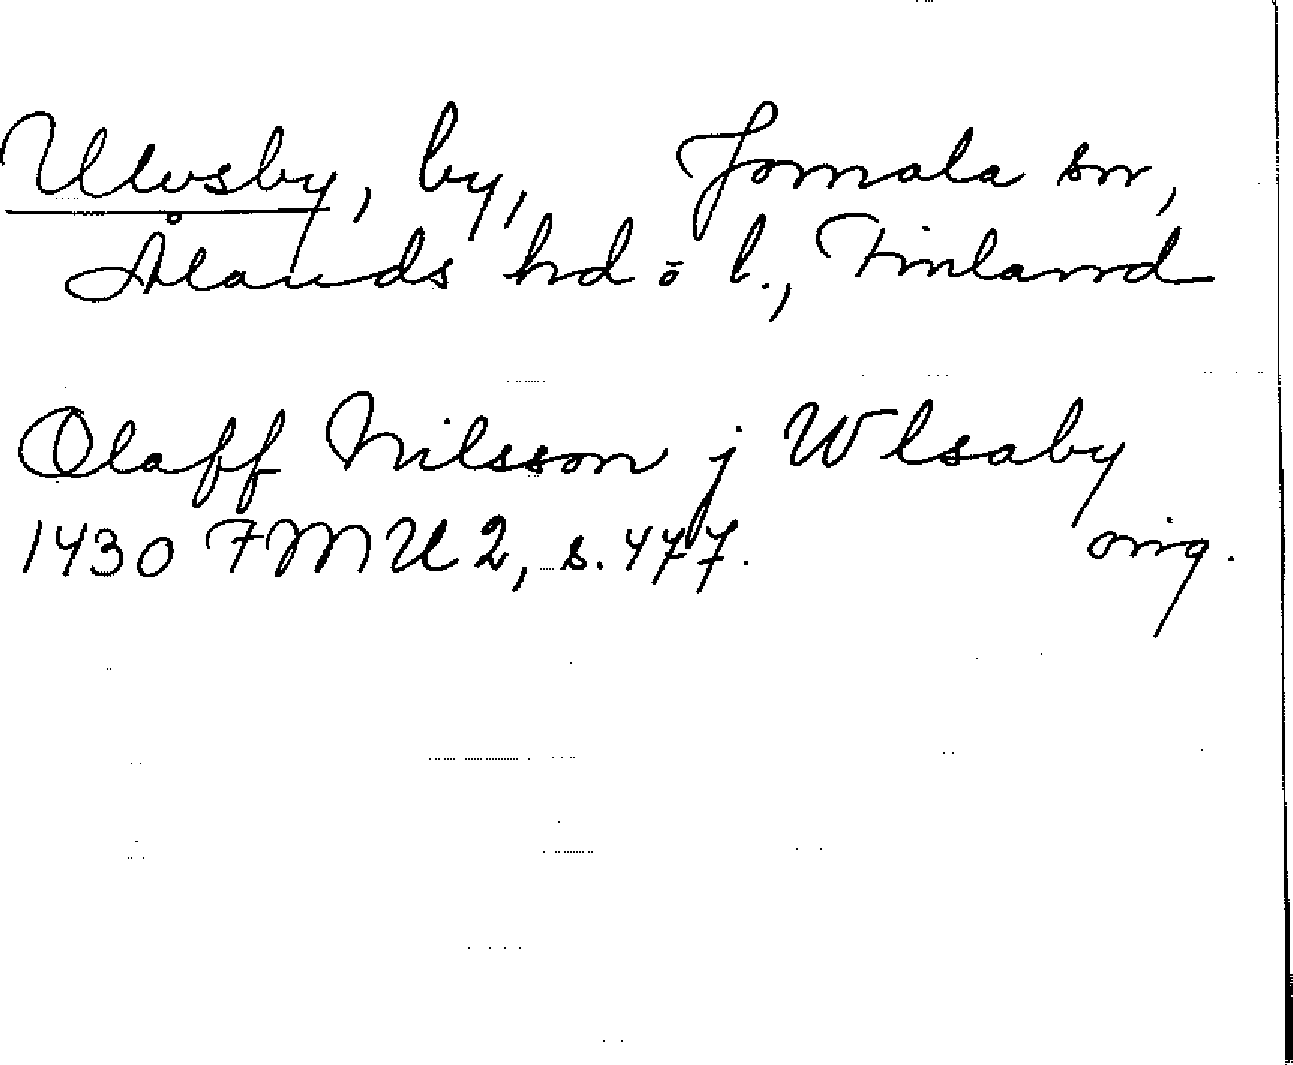 Ulvsby, by, Jomala sn,
Ålands hd o l., Finland
Olaff Nilsson j Wlsaby
1430 FMU 2, s. 477. orig.